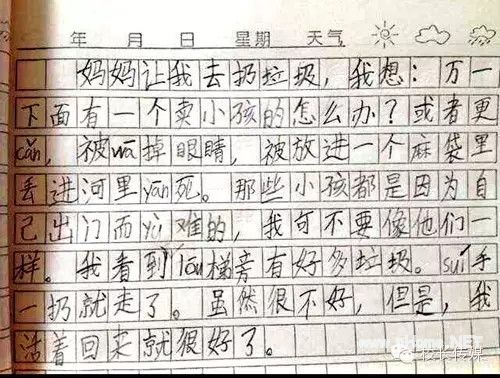 年 月 日 星期 天气
妈妈让我去扔垃圾，我想：万一
下面有一个卖小孩的怎么办？或者更
cǎn，被wā掉眼睛，被放进一个麻袋里
丢进河里yān死。那些小孩都是因为自
己出门而yù难的，我可不要像他们一
样。我看到lóu梯旁有好多垃圾。suí手
一扔就走了。虽然很不好，但是，我
活着回来就很好了。
校长传媒